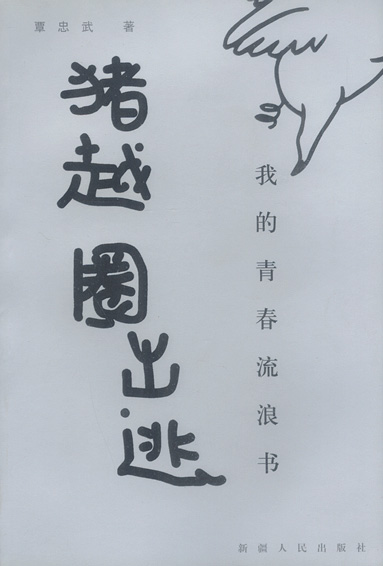 覃忠武 著
猪越圈出逃
我的青春流浪书
新疆人民出版社